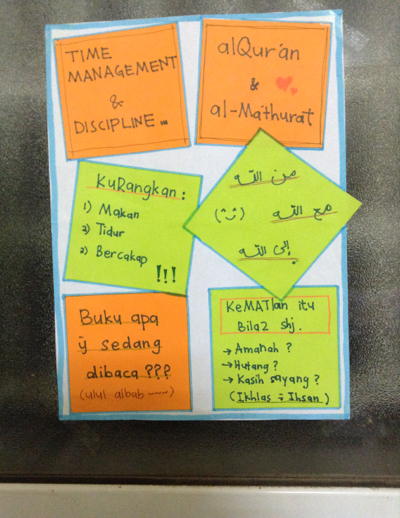 TIME
MANAGEMENT
&
DISCIPLINE...
alQur'an
&
al-Ma'thurat
KuRangkan :
1) Makan
3) Tidur
2) Bercakap
!!!
من الله
مع الله
إلى الله
Buku apa
yg sedang
dibaca ???
(ulul albab ~~~)
KeMATIan itu
Bila2 shj.
→ Amanah ?
→ Hutang ?
→ Kasih sayang ?
(Ikhlas = Ihsan)